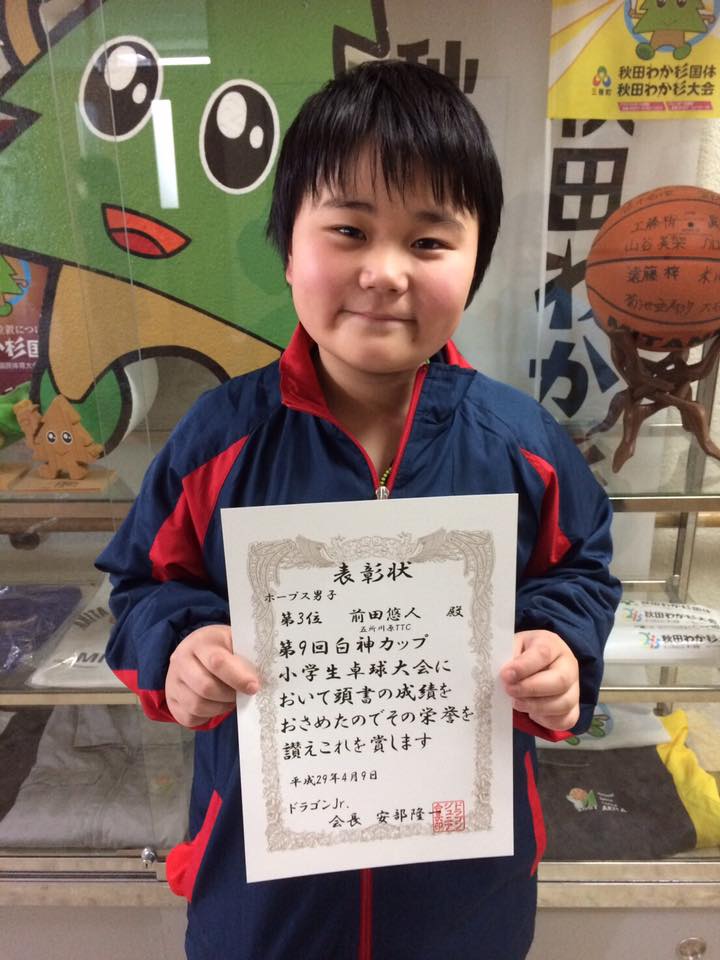 秋田わか杉国体
秋田わか杉大会
三種町
秋
秋田わか杉
工藤
山谷
遠藤 梓
わか杉国
表彰状
ホープス男子
第3位 前田悠人 殿
五所川原TTC
第9回白神カップ
小学生卓球大会に
おいて頭書の成績を
おさめたのでその栄誉を
讃えこれを賞します
平成29年4月9日
ドラゴンJr.
会長 安部隆一
秋田わか杉
AKITA